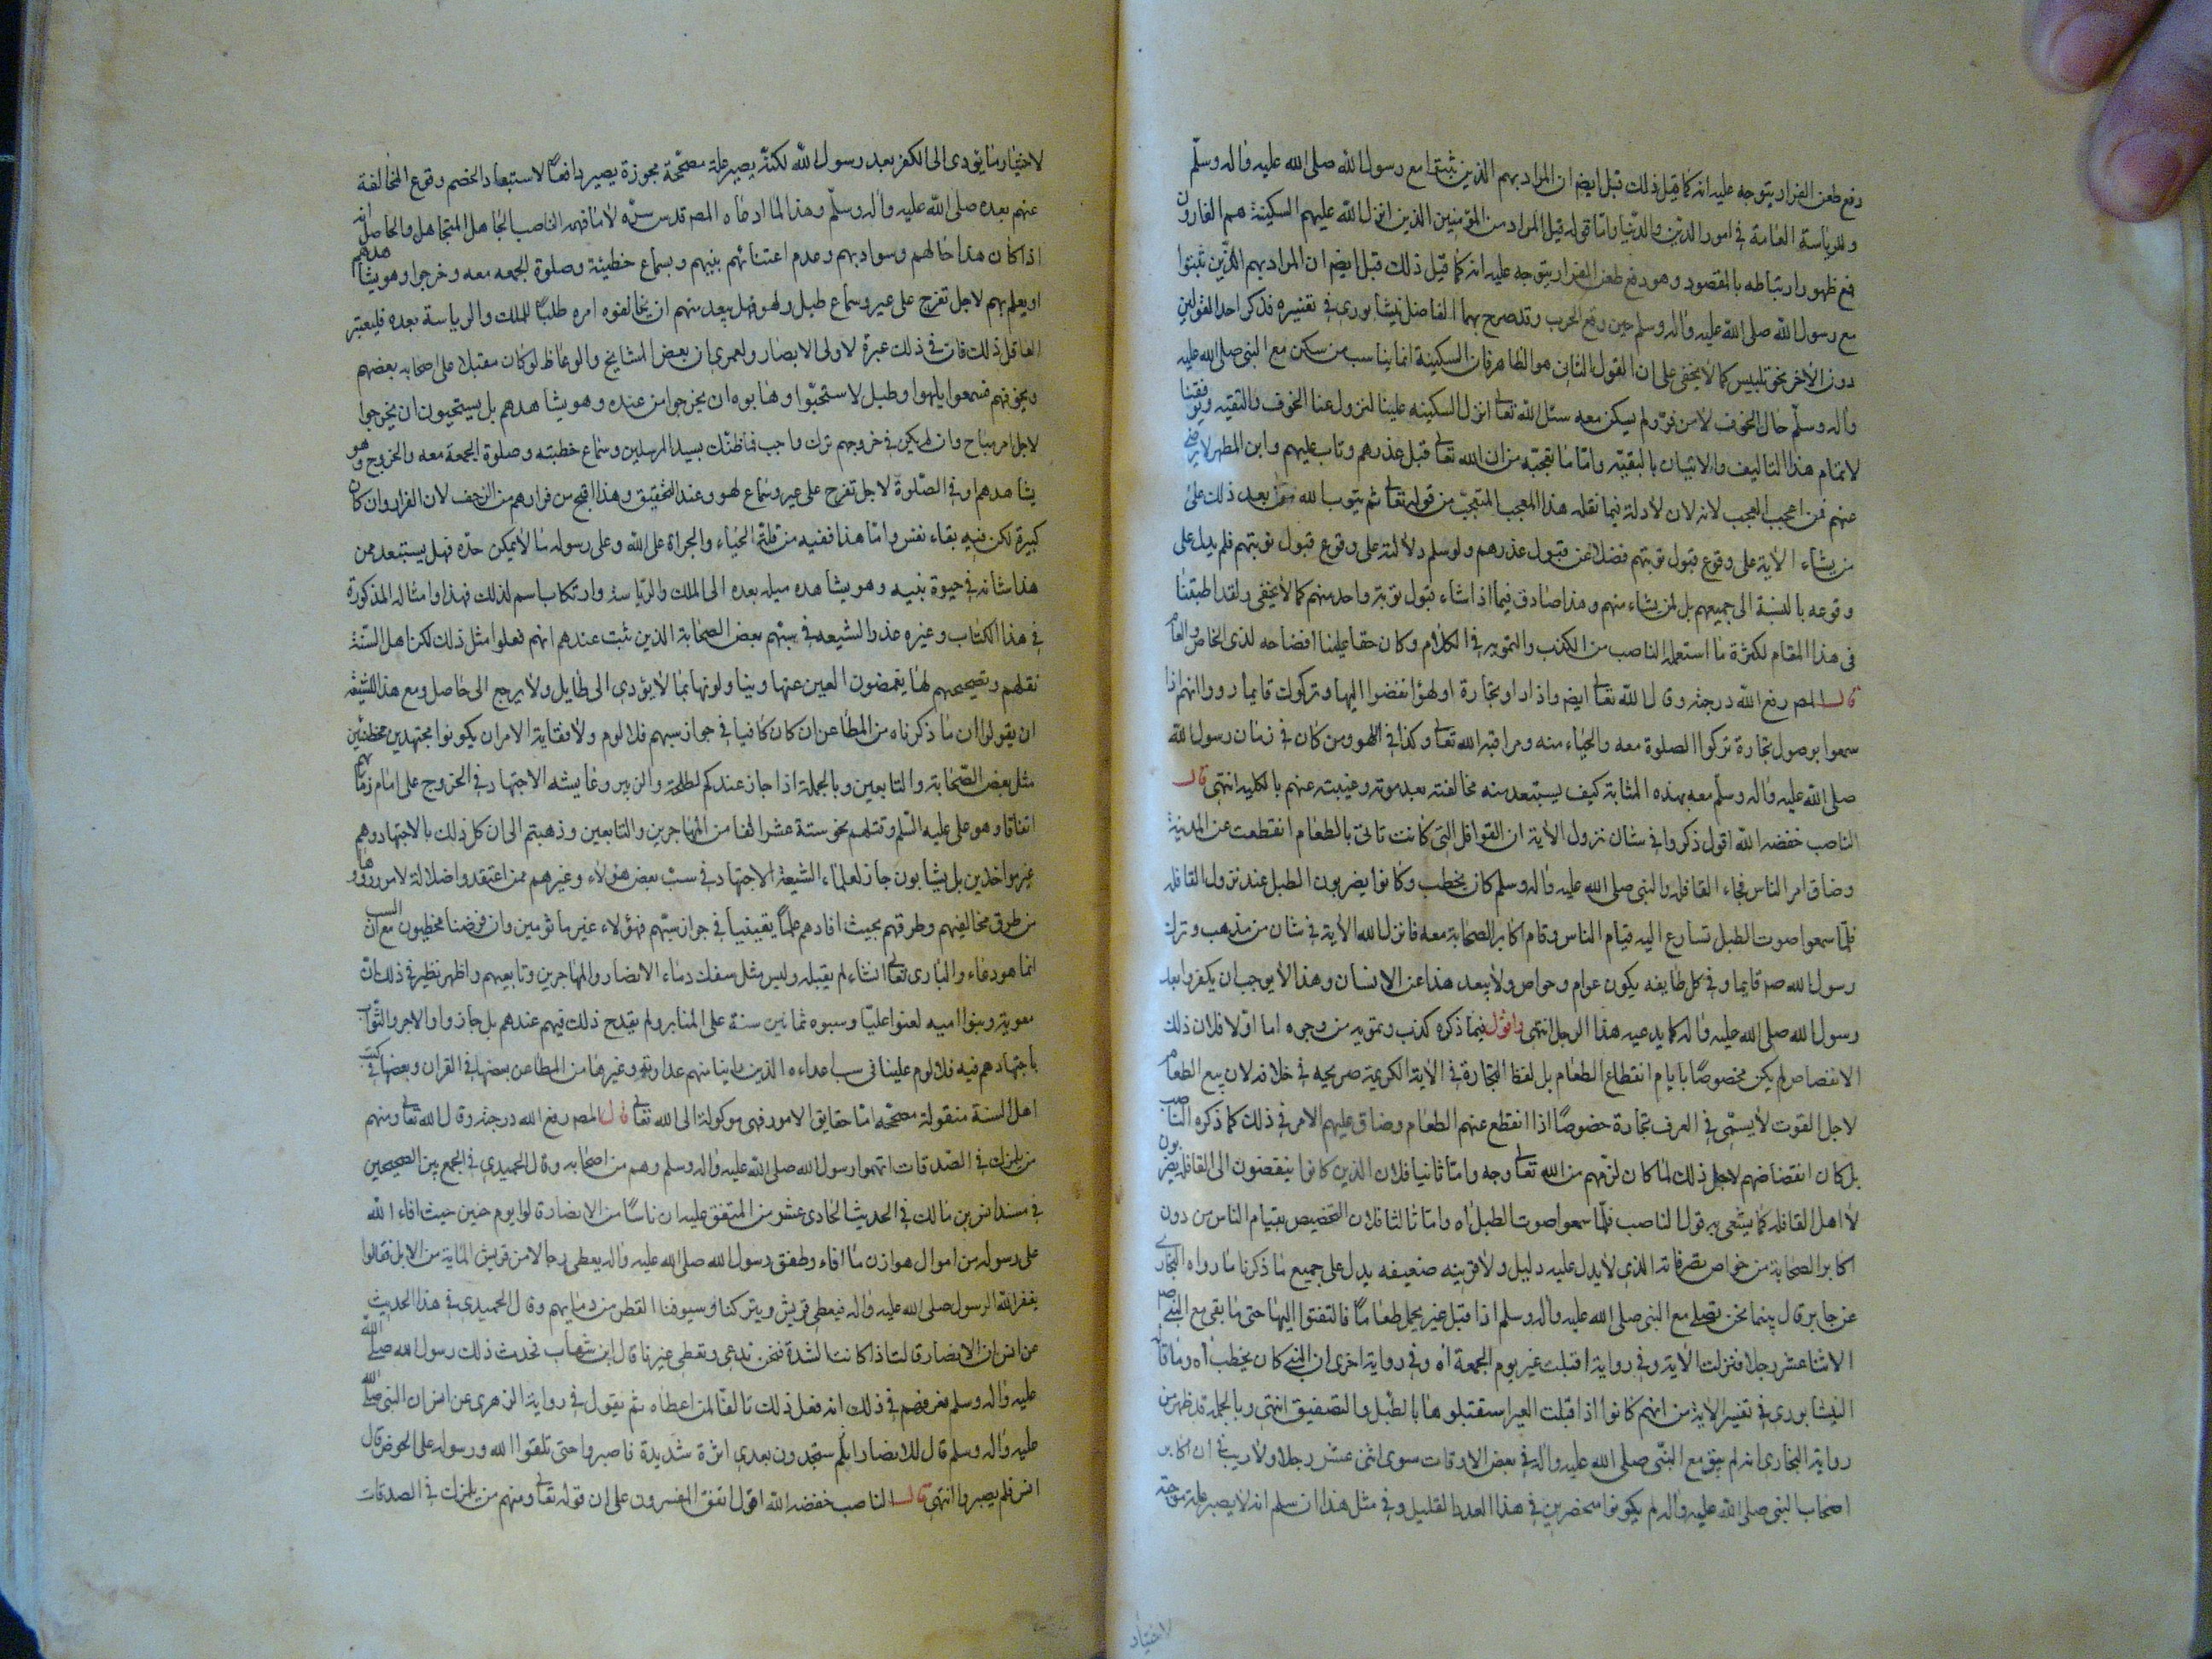 دفع طعن الفرار يتوجه عليه انه كما قيل ذلك قيل ايضا ان المراد بهم الذين ثبتوا مع رسول الله صلى الله عليه واله وسلّم
وللرياسة العامة في امور الدّين والدّنيا وامّا قوله قيل المراد من المؤمنين الذين انزل الله عليهم السكينة هم الفارون
فمع ظهور ارتباطه بالمقصود وهو دفع طعن الفرار يتوجه عليه انه كما قيل ذلك قيل ايضا ان المراد بهم الذّين ثبتوا
مع رسول الله صلى الله عليه واله وسلم حين وقع الحرب وقد صرح بهما الفاضل نيشابوري في تفسيره فذكر احد القولين
دون الاخر نحو تلبيس كما لا يخفى على ان القول الثاني هو الظاهر فان السكينة انما يناسب من سكن مع النبى صلى الله عليه
واله وسلّم حال الخوف لا من فرّ ولم يسكن معه سئل الله تعالى انزل السكينه علينا لنزول عنا الخوف والتقيه ويوفقنا
لاتمام هذا التاليف والاتيان بالبقيّه وامّا ما تعجبّه من ان الله تعالى قبل عذرهم وتاب عليهم وابن المطهر لا يرضى
عنهم فمن اعجب العجب لانه لان لا دلة فيما نقله هذا المعجب المتعجّب من قوله تعالى ثم يتوب الله من بعد ذلك على
من يشاء الاية على وقوع قبول توبتهم فضلا عن قبول عذرهم ولو سلم دلالته على وقوع قبول توبتهم فلم يدل على
وقوعه بالنسبة الى جميعهم بل لمن يشاء منهم وهذا صادق فيما اذا شاء قبول توبة واحد منهم كما لا يخفى ولقد اطبقنا
فى هذا المقام لكثرة ما استعمله الناصب من الكذب والتمويه في الكلام وكان حقا علينا افضاحه لذى الخاص والعام
قال المصر رفع الله درجته وقال الله تعالى ايضا واذا راو تجارة او لهوا انفضوا اليها وتركوك قايما رووا انهم اذا
سمعوا بوصول تجارة تركوا الصلوة معه والحياء منه ومراقبة الله تعالى وكذا في اللهو ومن كان في زمان رسول الله
صلى الله عليه واله وسلّم معه بهذه المثابة كيف يستبعد منه مخالفته بعد موته وغيبته عنهم بالكليه انتهى قال
الناصب خفضه الله اقول ذكروا في شان نزول الاية ان القوافل التى كانت تاتى بالطعام انقطعت عن المدينة
وضاق امر الناس فجاء القافله والنبى صلى الله عليه واله وسلم كان يخطب وكانوا يضربون الطبل عند نزول القافله
فلمّا سمعوا صوت الطبل تسارع اليه قيام الناس وقام اكابر الصحابة معه فانزل الله الاية في شان من مذهب وترك
رسول الله صم قايما وفي كل طايفه يكون عوام وخواص ولا يبعد هذا عن الانسان وهذا لا يوجب ان يكفروا بعد
رسول الله صلى الله عليه واله كما يدعيه هذا الرجل انتهى واقول فيما ذكره كذب وتمويه من وجوه اما اوّلا فلان ذلك
الانفضاض لم يكن مخصوصًا بايام انقطاع الطعام بل لفظ التجارة في الاية الكريمة صريحه في خلافه لان بيع الطعام
لاجل القوت لا يسمّى في العرف تجارة خصوصًا اذا انقطع عنهم الطعام وضاق عليهم الامر في ذلك كما ذكره الناصب
بل كان انفضاضهم لاجل ذلك لما كان لذمهم من الله تعالى وجه وامّا ثانيا فلان الذين كانوا ينفضون الى القافله يضربون
لا اهل القافله كما يشعر به قول الناصب فلمّا سمعوا صوت الطبل اه وامّا ثالثا فلان التخصيص بقيام الناس من دون
اكابر الصحابة من خواص تصرفاته الذى لا يدل عليه دليل ولا قرينه ضعيفه يدل على جميع ما ذكرنا ما رواه البخارى
عن جابر قال بينما نحن نصلى مع النبى صلى الله عليه واله وسلم اذ اقبل عير يحمل طعامًا فالتفتوا اليها حتى ما بقى مع النبى صم
الا اثنا عشر رجلا فنزلت الاية وفي رواية اقبلت عير يوم الجمعة اه وفي رواية اخرى ان النبى كان يخطب اه وما قاله
النيشابورى في تفسير الاية من انهم كانوا اذا قبلت العير استقبلوها بالطّبل والتصفيق انتهى وبالجملة قد ظهر من
رواية البخارى انه لم يبق مع النبّى صلى الله عليه واله في بعض الاوقات سوى اثنى عشر رجلا ولا ريب في ان اكابر
اصحاب النبى صلى الله عليه واله لم يكونوا منحصرين في هذا العدد القليل وفي مثل هذا ان سلم انه لا يصير علة موجبة
لاختيار
لاختيار ما يؤدى الى الكفر بعد رسول الله لكنّه يصير علة مصحّحة مجوزة يصير دافعًا لاستبعاد الخصم وقوع المخالفة
عنهم بعده صلى الله عليه واله وسلّم وهذا لما ادعاه المصر قدس سرّه لا ما فهمه الناصب الجاهل المتجاهل والحاصل انه
اذا كان هذا حالهم وسوادبهم وعدم اعتنائهم بنبيهم وبسماع خطبته وصلوة الجمعه معه وخرجوا وهو يشاهدهم
او يعلم بهم لاجل تفرج على عير وسماع طبل ولهو فهل يبعد منهم ان يخالفوه امره طلبًا للملك والرياسة بعده فليعتبر
العاقل ذلك فان في ذلك عبرة لاولى الابصار ولعمرى ان بعض المشايخ والوعاظ لو كان مقبلا على اصحابه بعضهم
ويخوفهم فسمعوا يا لهوا وطبل لاستحيّوا وهابوه ان يخرجوا من عنده وهو يشاهدهم بل يستحيون ان يخرجوا
لاجل امر مباح وان لم يكن في خروجهم ترك واجب فما ظنّك بسيد المرسلين وسماع خطبته وصلوة الجمعة معه والخروج وهو
يشاهدهم او في الصّلوة لاجل تفرج على عير وسماع لهو وعند التحقيق وهذا اقبح من فرارهم من الزحف لان الفرار وان كان
كبيرة لكن فيه بقاء نفس وامّا هذا ففيه من قلّة الحياء والجراة على الله وعلى رسوله ما لا يمكن حدّه فهل يستبعد ممن
هذا شانه في حيوة نبيه وهو يشاهده ميله بعده الى الملك والرّياسة وارتكاب اسم لذلك فهذا وامثاله المذكورة
في هذا الكتاب وغيره عذر الشيعه في سبّهم بعض الصحابة الذين ثبت عندهم انهم فعلوا مثل ذلك لكن اهل السّنة
نقلهم وتصحيحهم لها يغمضون العين عنها ويتاولونها بما لا يؤدى الى طايل ولا يرجع الى حاصل ومع هذا للشيعه
ان يقولوا ان ما ذكرناه من المطاعن ان كان كافيا في جواز سبهم فلا لوم ولا فغاية الامر ان يكونوا مجتهدين مخطئين
مثل بعض الصّحابة والتابعين وبالجملة اذا جاز عندكم لطلحة والزبير وعايشه الاجتهاد في الخروج على امام زمانهم
اتفاقا وهو على عليه السّلم وقتلهم نحو ستة عشر الفا من المهاجرين والتابعين وذهبتم الى ان كل ذلك بالاجتهاد وهم
غير مواخذين بل يثابون جاز لعلماء الشيعة الاجتهاد في سبّ بعض هؤلاء وغيرهم ممن اعتقدوا ضلالة لامور رووها
من طرق مخالفيهم وطرقهم بحيث افادهم علمًا يقينيا في جواز سبّهم فهؤلاء غير ماثومين وان فرضنا مخطيون مع ان السب
انما هو دعاء والبارى تعالى انشاء لم يقبله وليس مثل سفك دماء الانصار والمهاجرين وتابعيهم واظهر نظير في ذلك انّ
معوية وبنوا اميه لعنوا عليّا وسبوه ثمانين سنة على المنابر ولم يقدح ذلك فيهم عندهم بل جازوا والاجر والثّواب
باجتهادهم فيه فلا لوم علينا فى سب اعداءه الذين راينا منهم عداوته وغيرها من المطاعن بعضها في القران وبعضها في كتب
اهل السنة منقولة مصحّحه امّا حقايق الامور فهى موكولة الى الله تعالى قال المصر رفع الله درجته وقال الله تعالى ومنهم
من يلمزك في الصّدقات اتهموا رسول الله صلى الله عليه واله وسلم وهم من اصحابه وقال الحميدي في الجمع بين الصحيحين
في مسند انس بن مالك في الحديث الحادى عشر من المتفق عليه ان ناسًا من الانصار قالوا يوم حنين حيث افاء الله
على رسوله من اموال هوازن ما افاء وطفق رسول الله صلى الله عليه واله يعطى رجالا من قريش الماية من الابل فقالوا
يغفر الله لرسول صلى الله عليه واله فيعطى قريش ويتركنا وسيوفنا القطر من دمايهم وقال الحميدى في هذا الحديث
عن انس ان الانصار قالت اذا كانت الشدة فنحن ندعى وتعطى غيرنا قال ابن شهاب فحدث ذلك رسول الله صلى الله
عليه واله وسلم فعرفهم في ذلك انه فعل ذلك تالفًا لمن اعطاه ثم يقول في رواية الزهرى عن انس ان النبى صلى الله
عليه واله وسلم قال للانصار انكم ستجدون بعدى اثرة شديدة فاصبروا حتى تلقوا الله ورسوله على الحوض قال
انس فلم يصبروا انتهى قال الناصب خفضه الله اقول اتفق المفسرون على ان قوله تعالى ومنهم من يلمزك في الصدقات